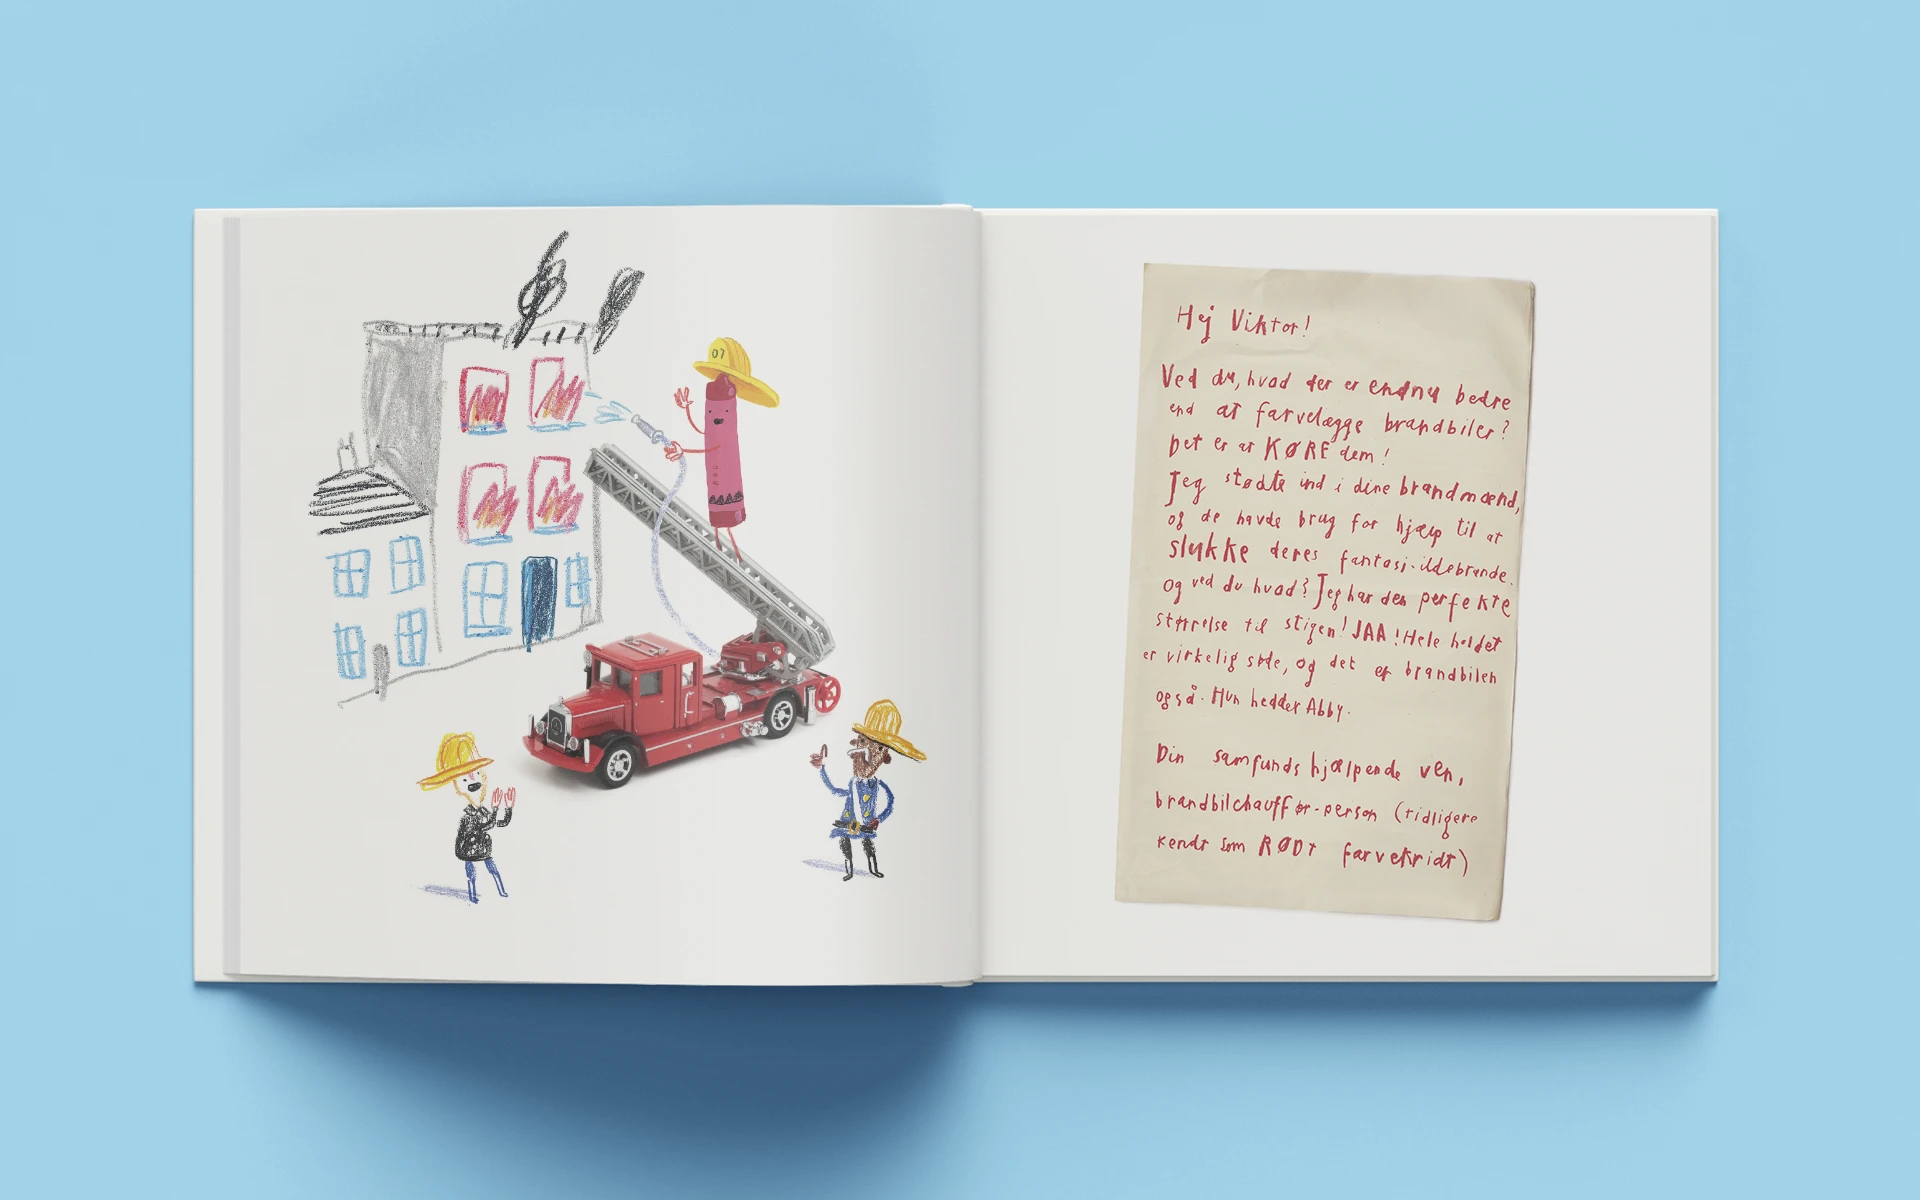 07
Hej Viktor!
Ved du, hvad der er endnu bedre
end at farvelægge brandbiler?
Det er at KØRE dem!
Jeg stødte ind i dine brandmænd,
og de havde brug for hjælp til at
slukke deres fantasi-ildebrande.
og ved du hvad? Jeg har den perfekte
størrelse til stigen! JAA! Hele holdet
er virkelig søde, og det er brandbilen
også. Hun hedder Abby.
Din samfundshjælpende ven,
brandbilchauffør-person (tidligere
kendt som RØDT farvekridt)